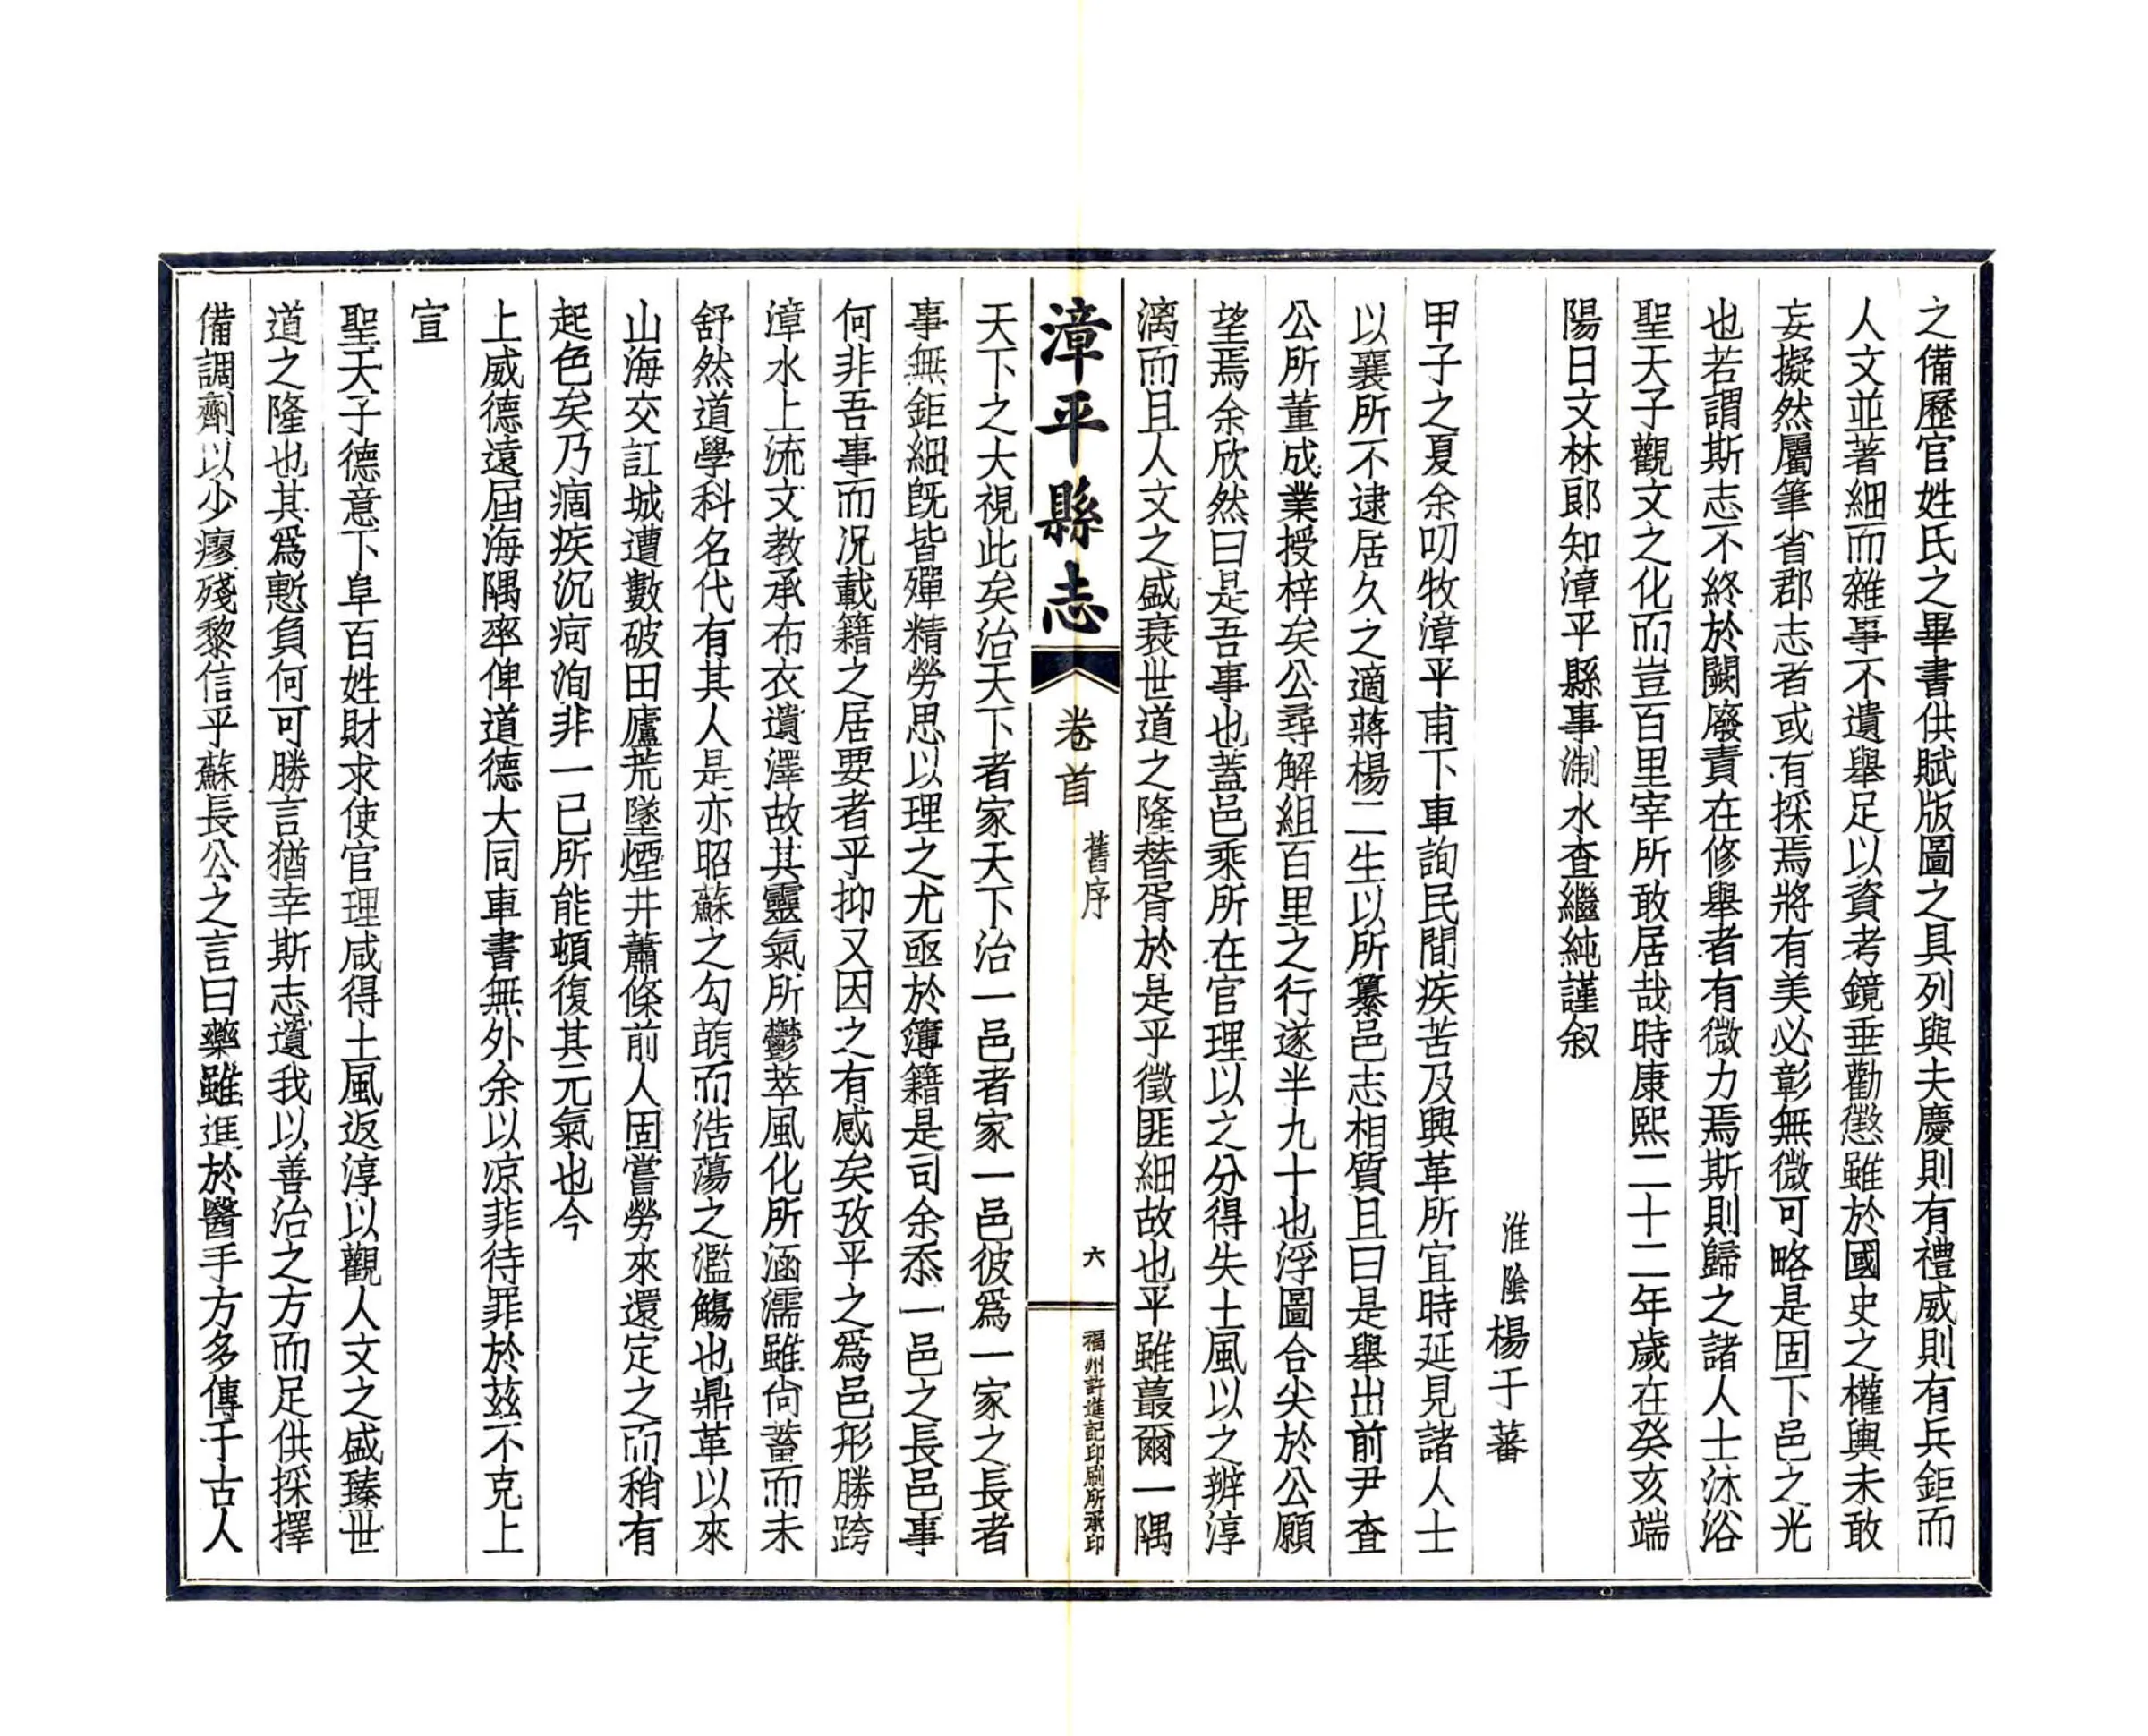 之備歷官姓氏之畢書供賦版圖之具列與夫慶則有禮威則有兵鉅而
人文並著細而雜事不遺舉足以資考鏡垂勸懲雖於國史之權輿未敢
妄擬然屬筆省郡志者或有採焉將有美必彰無微可略是固下邑之光
也若謂斯志不終於闕廢責在修舉者有微力焉斯則歸之諸人士沐浴
聖天子觀文之化而豈百里宰所敢居哉時康熙二十二年歲在癸亥端
陽日文林郎知漳平縣事淛水查繼純謹叙
淮陰楊于蕃
甲子之夏余叨牧漳平甫下車詢民間疾苦及興革所宜時延見諸人士
以襄所不逮居久之適蔣楊二生以所纂邑志相質且曰是舉出前尹查
公所董成業授梓矣公尋解組百里之行遂半九十也浮圖合尖於公願
望焉余欣然曰是吾事也蓋邑乘所在官理以之分得失土風以之辨淳
漓而且人文之盛衰世道之隆替胥於是乎徵匪細故也平雖蕞爾一隅
漳平縣志
卷首
舊序
六
福州許進記印刷所承印
天下之大視此矣治天下者家天下治一邑者家一邑彼爲一家之長者
事無鉅細旣皆殫精勞思以理之尤亟於簿籍是司余忝一邑之長邑事
何非吾事而況載籍之居要者乎抑又因之有感矣攷平之爲邑形勝跨
漳水上流文教承布衣遺澤故其靈氣所鬱萃風化所涵濡雖尙蓄而未
舒然道學科名代有其人是亦昭蘇之勾萌而浩蕩之濫觴也鼎革以來
山海交訌城遭數破田廬荒墜煙井蕭條前人固嘗勞來還定之而稍有
起色矣乃痼疾沉疴洵非一已所能頓復其元氣也今
上威德遠屆海隅率俾道德大同車書無外余以凉菲待罪於茲不克上
宣
聖天子德意下阜百姓財求使官理咸得土風返淳以觀人文之盛臻世
道之隆也其爲慙負何可勝言猶幸斯志遺我以善治之方而足供採擇
備調劑以少瘳殘黎信乎蘇長公之言曰藥雖進於醫手方多傳于古人